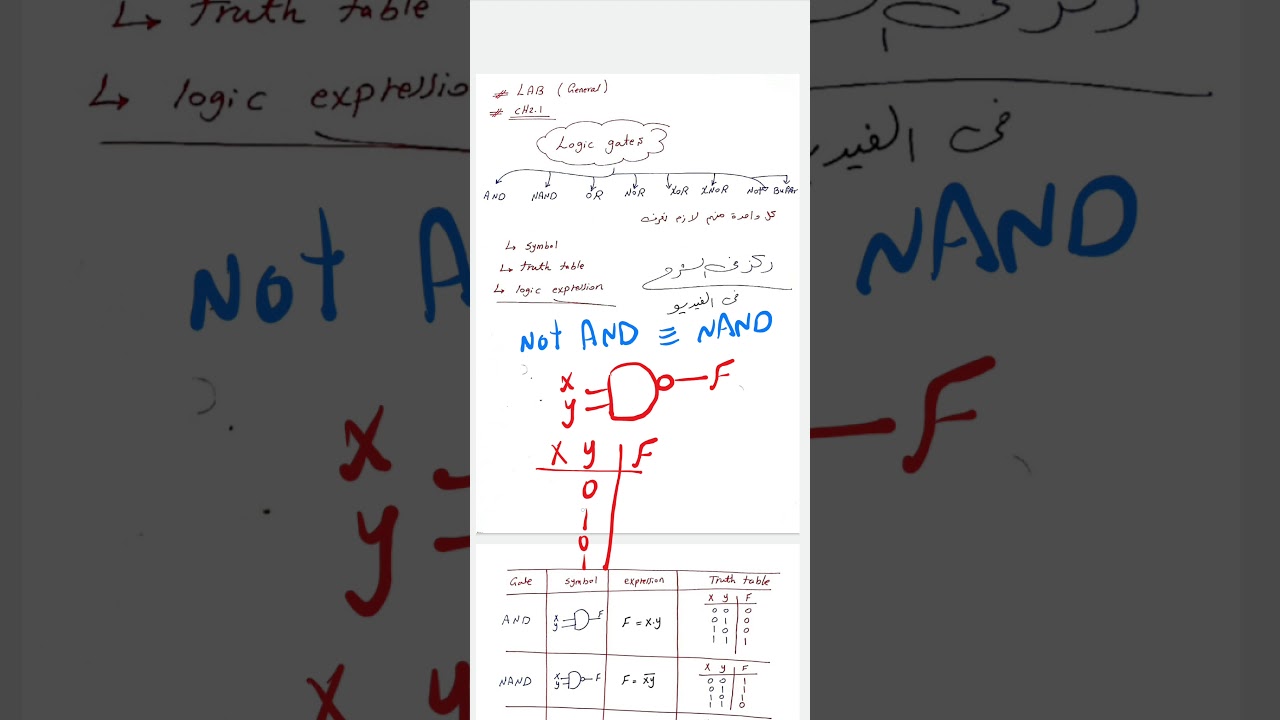 # LAB (General)
# CH2.1
Logic gates
AND NAND OR NOR XOR XNOR Not BuFFer
كل واحدة منهم لازم نعرف
↳ symbol
↳ truth table
↳ logic expression
ركز في الشرح
في الفيديو
Not AND ≡ NAND
x
y
F
X y F
0
1
0
1
Gate symbol expression Truth table
AND x y F F = x.y
X y F
0 0 0
0 1 0
1 0 0
1 1 1
NAND x y F F = x̅y̅
X y F
0 0 1
0 1 1
1 1 1
1 1 0